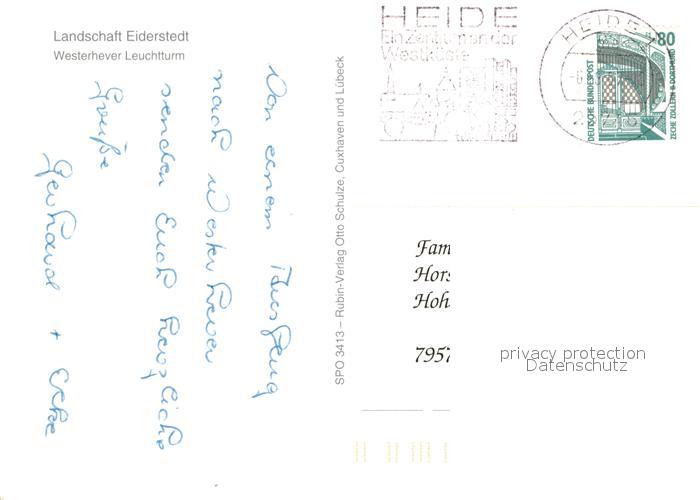 Landschaft Eiderstedt
Westerhever Leuchtturm
Von einem Ausflug
nach Westerhever
senden Euch herzliche
Grüße
Gerhard +
SPO 3413 – Rubin-Verlag Otto Schulze, Cuxhaven und Lübeck
HEIDE
Ein Zentrum an der
Westküste
HEIDE
80
DEUTSCHE BUNDESPOST
ZECHE ZOLLERN II · DORTMUND
Fam
Hors
Hoh
7957
privacy protection
Datenschutz